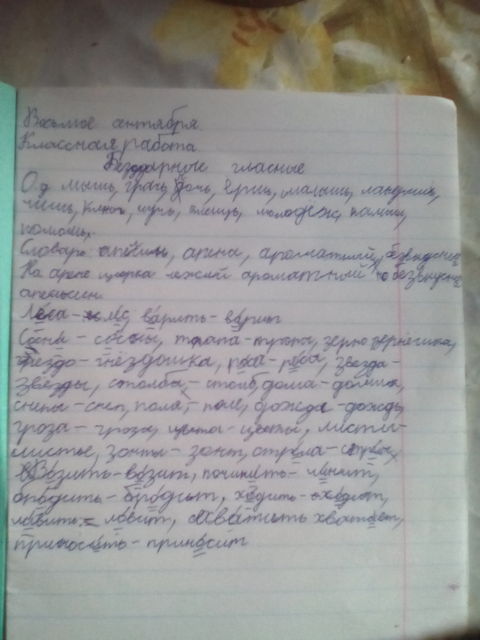 Восьмое сентября.
Классная работа
Бездарные гласные
О.д мышь, грачь, Дочь, ерш, малыш, ландыш,
чиш, ключ, плющь, молодёж, камыш,
помощь.
Словарь: апельсин, арена, ароматный,
На арене цирка лежал ароматный
апельсин.
Леса - лес, варить - варит
Сосна - сосны, трава - травы, зерно зёрнышка,
гнездо - гнёздошка, роса - росы, звезда -
звёзды, столбы - столб, дома - домик,
снопы - сноп, поля - поле, дожди - дождь,
гроза - грозы, цветы, листья -
листье, зонты - зонт, стрела - стрелы,
Возить - возит, починить - чинит,
бродить - бродит, ходить - ходит,
ловить - ловит, хватить хватает,
приносить - приносит